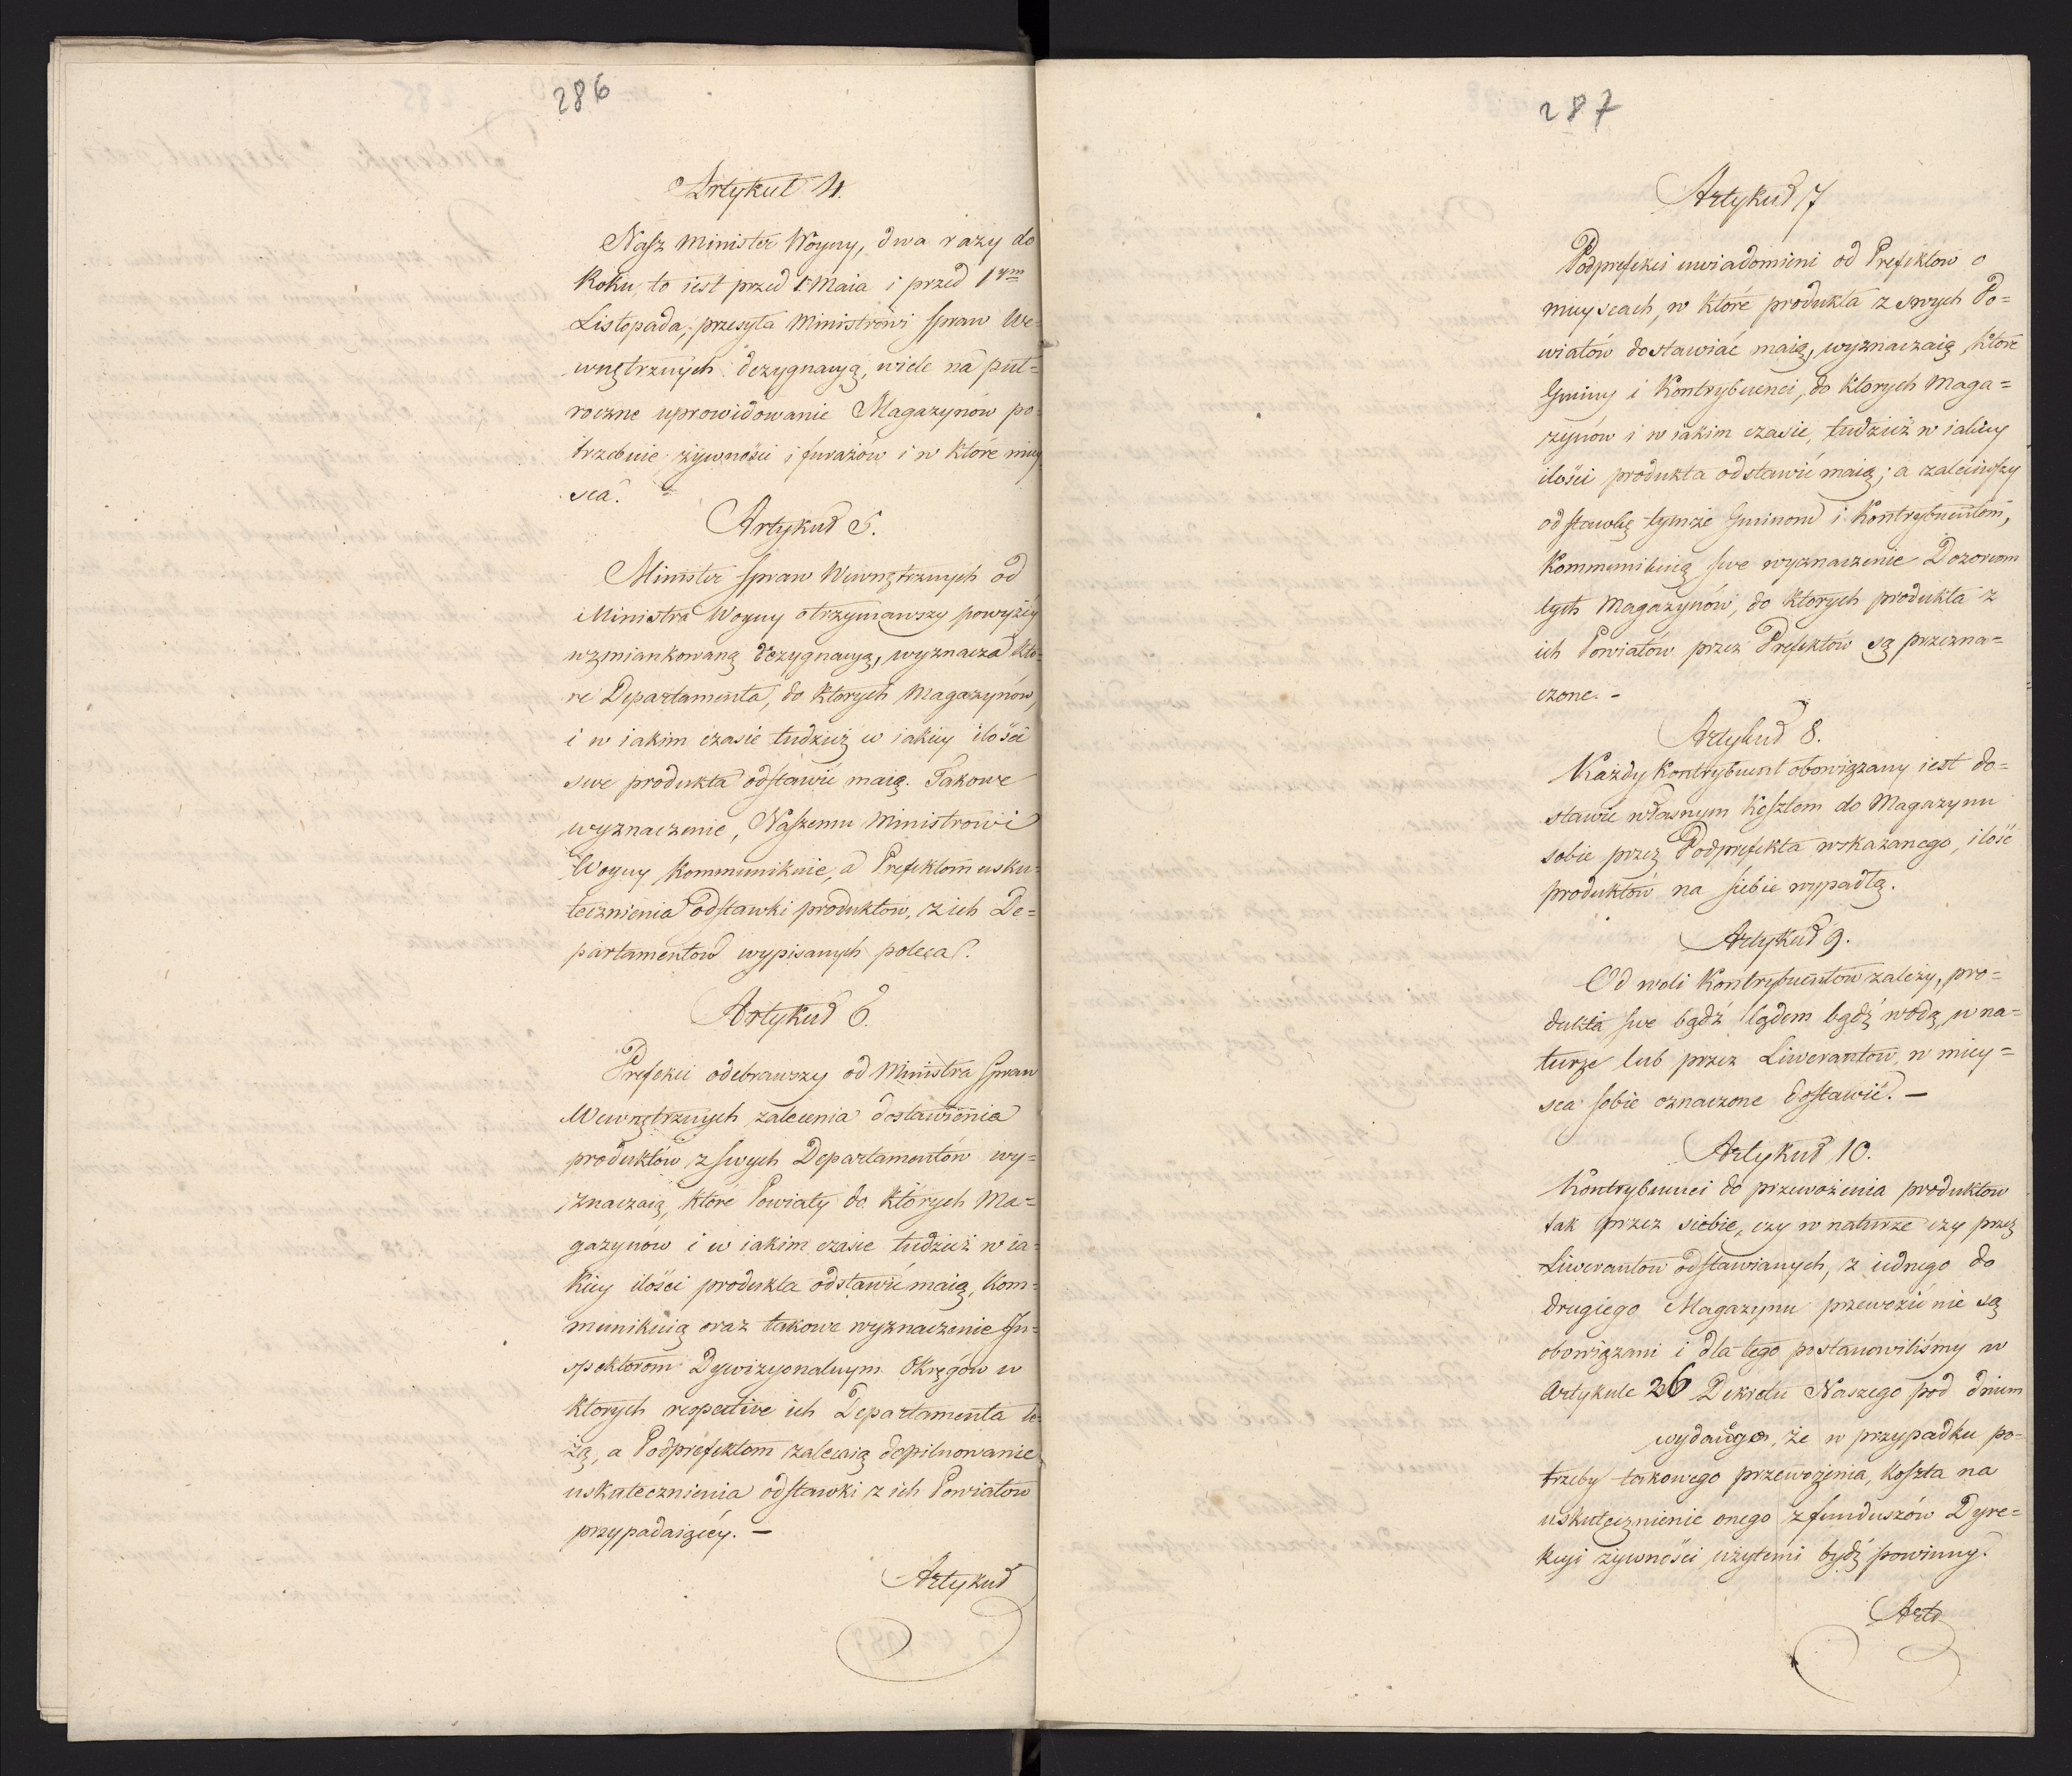 286
Artykuł 4.
Nasz Minister Woyny, dwa razy do
Roku, to iest przed 1. Maia i przed 1ym
Listopada, przesyła Ministrowi Spraw We=
wnętrznych dezygnacyą, wiele na puł=
roczne uprowidowanie Magazynów po=
trzebuie żywności i furażów i w które miey=
sca.
Artykuł 5.
Minister Spraw Wewnętrznych od
Ministra Woyny otrzymawszy powyżéy
wzmiankowaną dezygnacyą, wyznacza któ=
re Departamenta, do których Magazynów,
i w iakim czasie tudzież w iakiey ilości
swe produkta odstawić maią. Takowe
wyznaczenie, Naszemu Ministrowi
Woyny kommunikuie, a Prefektom usku=
tecznienia odstawki produktow, z ich De=
partamentow wypisanych poleca.
Artykuł 6.
Prefekci odebrawszy od Ministra Spraw
Wewnętrznych zalecenia dostawienia
produktów z swych Departamentów wy=
znaczaią, które Powiaty do których Ma=
gazynów i w iakim czasie tudzież w ia=
kiey ilości produkta odstawić maią, kom=
munikuią oraz takowe wyznaczenie In=
spektorom Dywizyonalnym Okręgów w
ktorych respective ich Departamenta le=
żą, a Podprefektom zalecaią dopilnowanie
uskutecznienia odstawki z ich Powiatow
przypadaiącéy. —
Artykuł
287
Artykuł 7
Podprefekci uwiadomieni od Prefektow o
mieyscach, w które produkta z swych Po=
wiatów dostawiać maią, wyznaczaią które
Gminy i Kontrybuenci, do ktorych Maga=
zynów i w iakim czasie, tudzież w iakiey
ilości produkta odstawić maią; a zaleciwszy
odstawkę tymże Gminom i Kontrybuentom,
Kommunikuią swe wyznaczenie Dozorcom
tych Magazynów, do ktorych produkta z
ich Powiatów przez Prefektów są przezna=
czone. -
Artykuł 8.
Każdy Kontrybuent obowiązany iest do=
stawić własnym kosztem do Magazynu
sobie przez Podprefekta wskazanego, ilość
produktów na siebie wypadłą.
Artykuł 9.
Od woli Kontrybuentow zależy, pro=
dukta swe bądź lądem bądź wodą, w na=
turze lub przez Liwerantow, w miey=
sca sobie oznaczone dostawić. —
Artykuł 10.
Kontrybuenci do przewożenia produktow
tak przez siebie, czy w naturze czy przez
Liwerantow odstawianych, z iednego do
drugiego Magazynu przewozić nie są
obowiązani i dla tego postanowiliśmy w
Artykule 26 Dekretu Naszego pod dniem
wydanego, że w przypadku po=
trzeby takowego przewożenia, koszta na
uskutecznienie onego z funduszów Dyre=
kcyi żywności użytemi bydź powinny.
Art